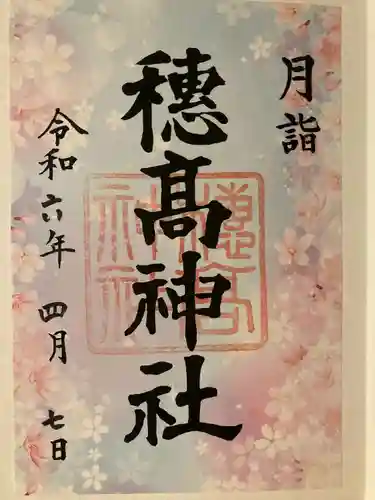 月詣
穗髙神社
令和六年 四月 七日
穗高神社